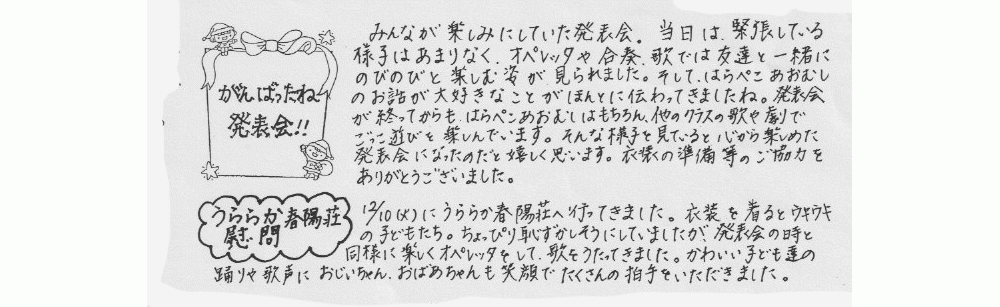 がんばったね
発表会!!
みんなが楽しみにしていた発表会。当日は、緊張している
様子はあまりなく、オペレッタや合奏、歌では友達と一緒に
のびのびと楽しむ姿が見られました。そして、はらぺこあおむし
のお話が大好きなことがほんとに伝わってきましたね。発表会
が終ってからも、はらぺこあおむしはもちろん、他のクラスの歌や劇で
ごっこ遊びを楽しんでいます。そんな様子を見ていると心から楽しめた
発表会になったのだと嬉しく思います。衣装の準備等のご協力を
ありがとうございました。
うららか春陽荘
慰問
12/10(火)にうららか春陽荘へ行ってきました。衣装を着るとウキウキ
の子どもたち。ちょっぴり恥ずかしそうにしていましたが、発表会の時と
同様に楽しくオペレッタをして、歌をうたってきました。かわいい子ども達の
踊りや歌声におじいちゃん、おばあちゃんも笑顔でたくさんの拍手をいただきました。